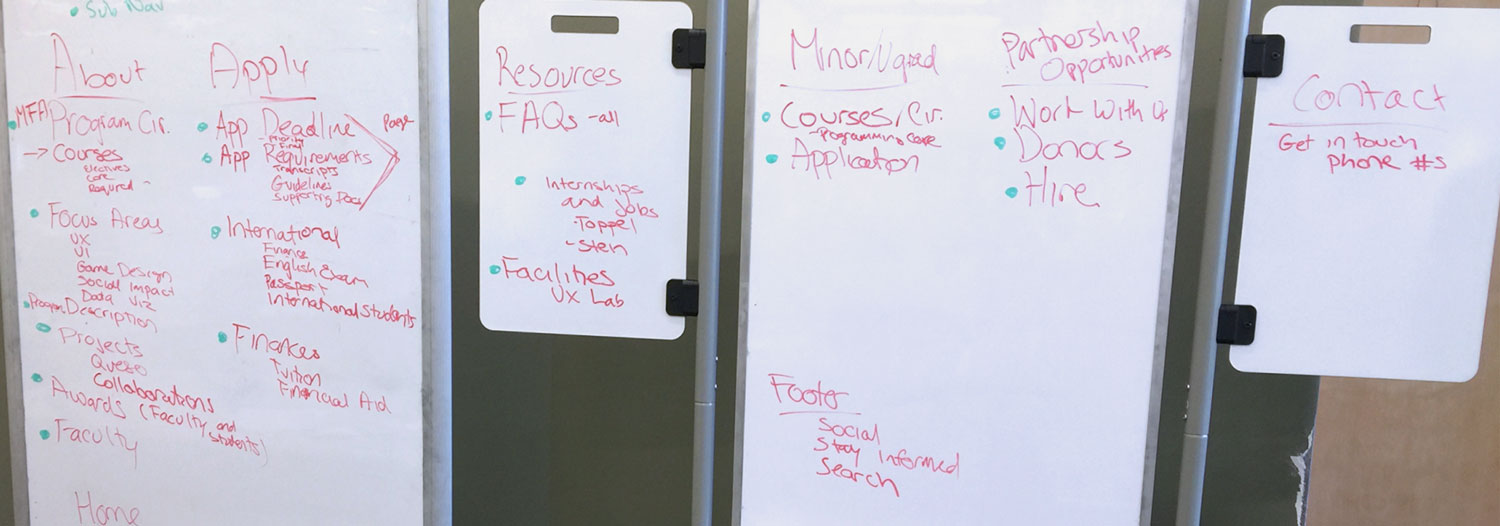 • Sub Nav
About
• MFA Program Cir.
-> Courses
Electives
Core
Required -
• Focus Areas
UX
UI
Game Design
Social Impact
Data Viz
• Program Description
• Projects
• Awards (Faculty and
Collaborations
Students)
• Faculty
Home
Apply
• App Deadline
- Priority
- Final
• App Requirements
Transcripts
Guidelines
Supporting Docs
Page
• International
Finance
English Exam
Passport
International Students
• Finances
Tuition
Financial Aid
Resources
• FAQs - all
• Internships
and Jobs
- Toppel
- Stein
• Facilities
UX Lab
Minor/Ugrad
• Courses/Cir.
- Programming Core
• Application
Partnership
Opportunities
• Work With Us
• Donors
• Hire
Footer
Social
Stay Informed
Search
Contact
Get in touch
phone #s